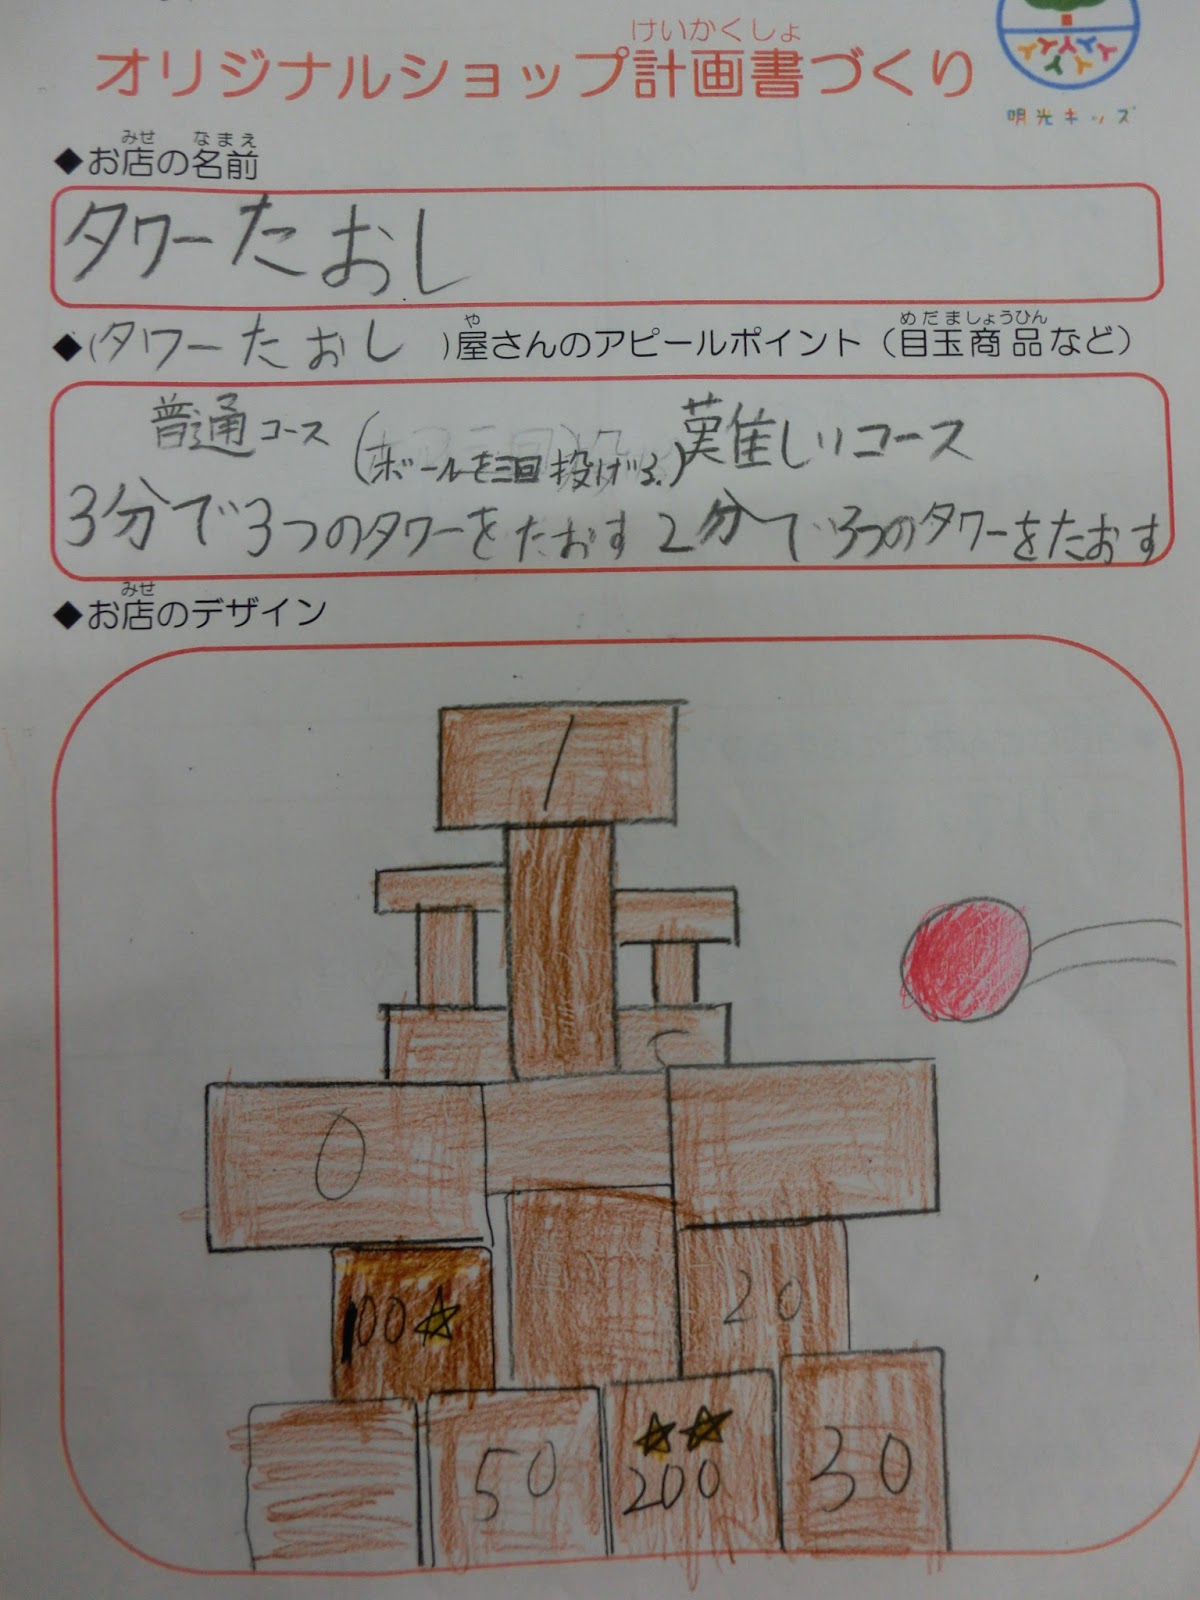 けいかくしょ
オリジナルショップ計画書づくり
明光キッズ
みせ なまえ
◆お店の名前
タワーたおし
や めだましょうひん
◆(タワーたおし)屋さんのアピールポイント(目玉商品など)
普通コース (ボールを三回投げる.) 難しいコース
3分で3つのタワーをたおす 2分で3つのタワーをたおす
みせ
◆お店のデザイン
1
5
0
100☆ 20
50 ☆☆ 200 30